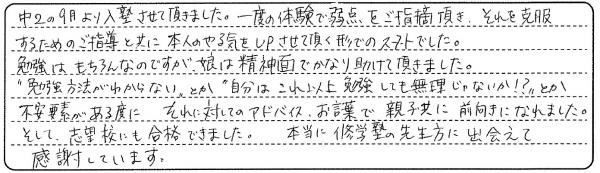 中2の9月より入塾させて頂きました。一度の体験で弱点をご指摘頂き、それを克服
するためのご指導と共に本人のやる気をUPさせて頂く形でのスタートでした。
勉強は、もちろんなのですが、娘は精神面でかなり助けて頂きました。
"勉強方法がわからない"とか"自分はこれ以上勉強しても無理じゃないか!?"とか
不安要素がある度に それに対してのアドバイス、お言葉で 親子共に 前向きになれました。
そして、志望校にも合格できました。 本当に修学塾の先生方に出会えて
感謝しています。